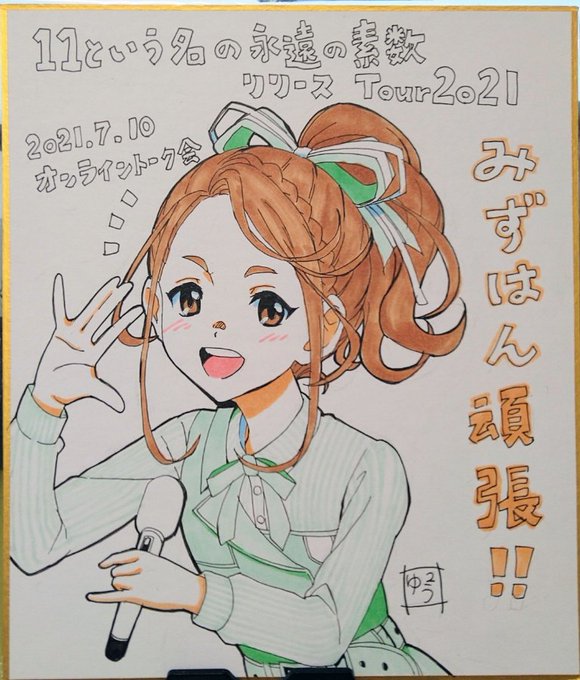 11という名の永遠の素数
リリース Tour2021
2021.7.10
オンライントーク会
みずはん頑張!!
ゆうつ